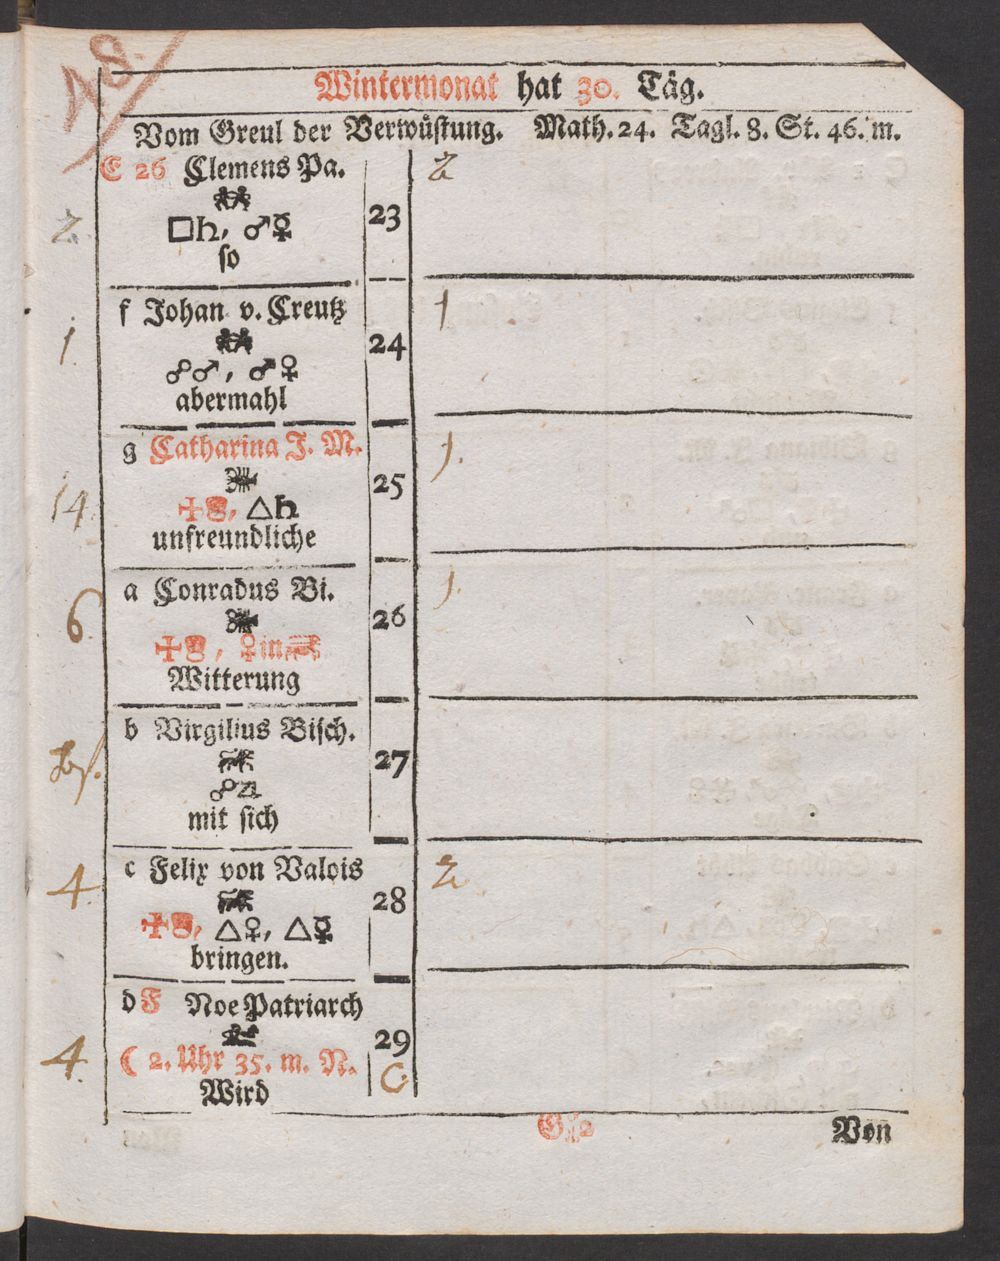 Wintermonat hat 30. Täg.
Vom Greul der Verwüstung. Math. 24. Tagl. 8. St. 46. m.
E 26 Clemens Pa.
2
□♄, ♂☿ 23
so
f Johan v. Creutz
1
1.
☍♂, ♂♀ 24
abermahl
g Catharina J. M.
1.
14.
△♄ 25
unfreundliche
a Conradus Bi.
1.
6.
♀in 26
Witterung
b Virgilius Bisch.
☍♃ 27
mit sich
c Felix von Valois
2
4.
△♀, △☿ 28
bringen.
d F Noe Patriarch
29
4.
☾ 2. Uhr 35. m. N.
Wird
Von